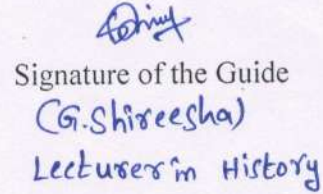 Signature of the Guide
(G.Shireesha)
Lecturer in History